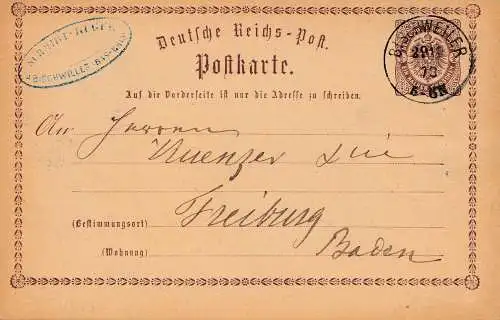 Deutsche Reichs-Post.
Postkarte.
BISCHWEILER
Auf die Vorderseite ist nur die Adresse zu schreiben.
An Herren
Kuenzer & Cie
(Bestimmungsort)
Freiburg
(Wohnung)
Baden